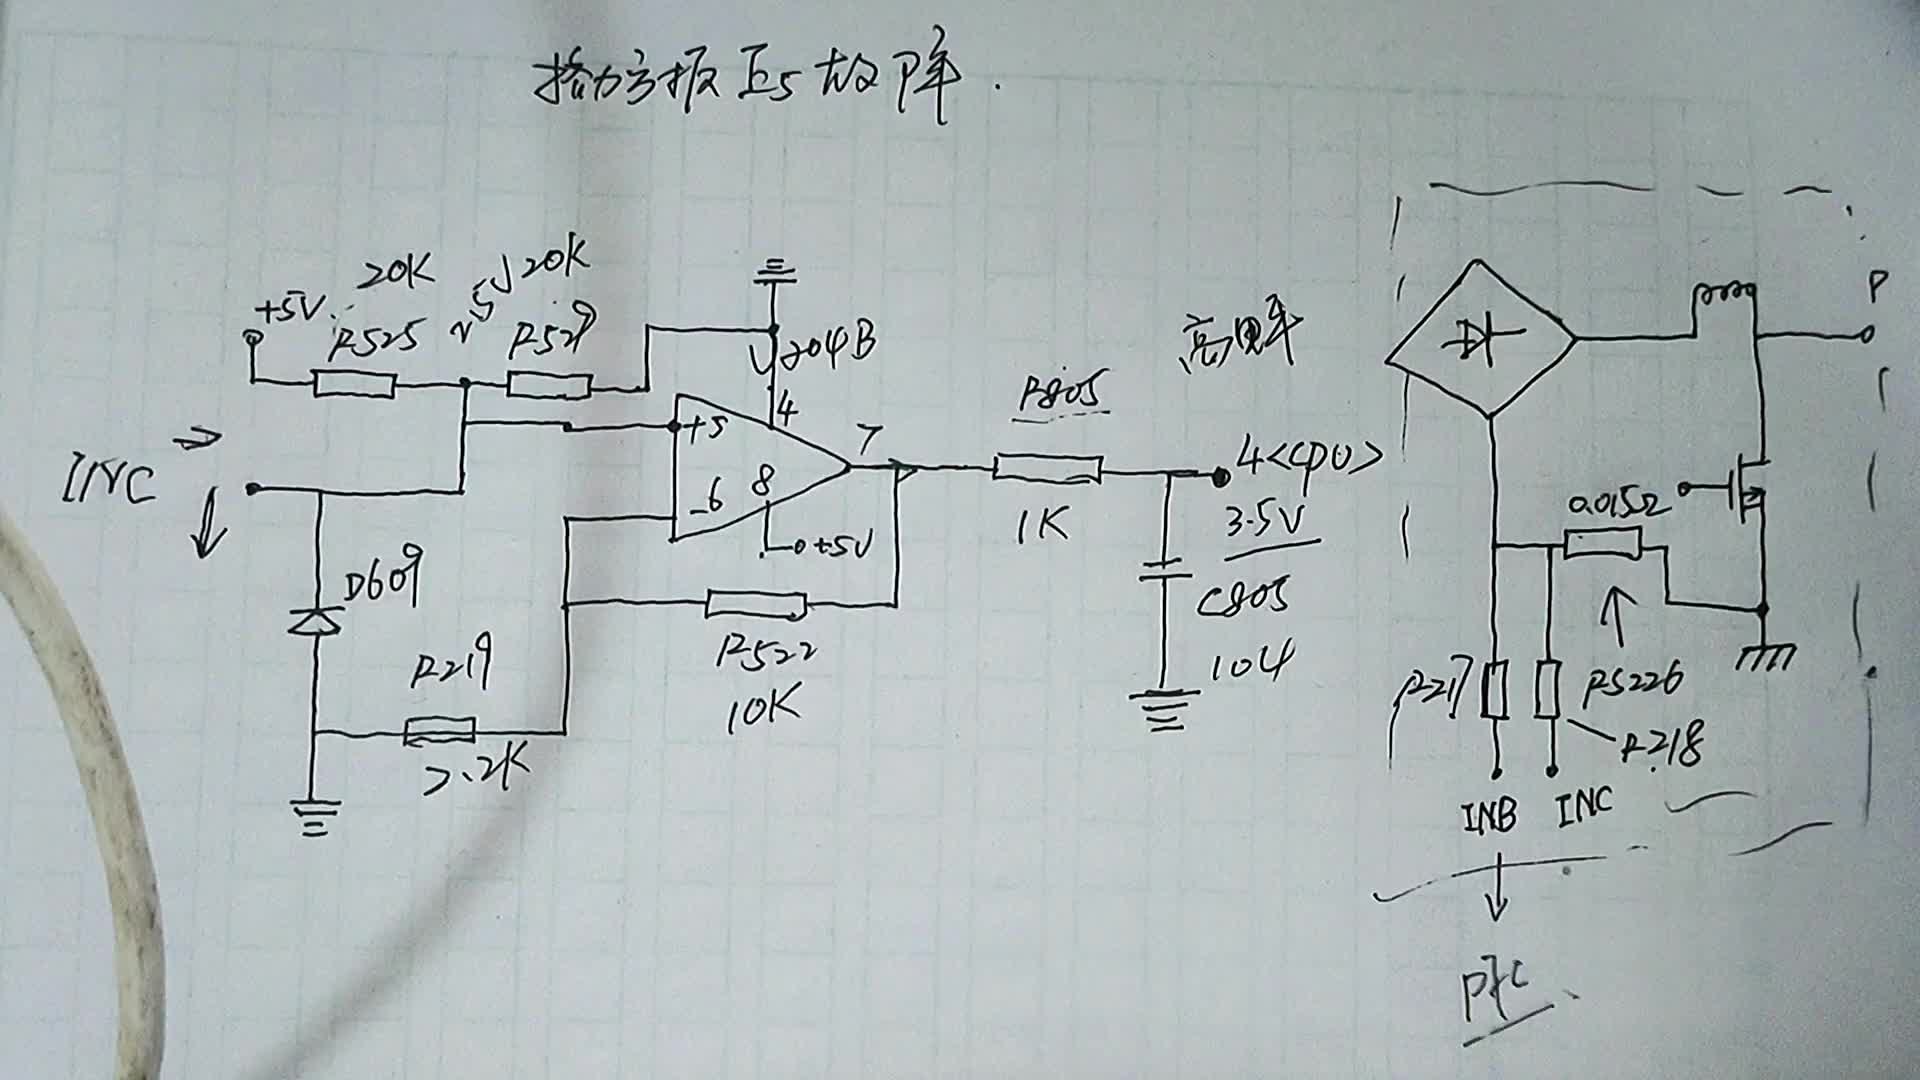 格力方板E5故障.
20K
20K
+5V
R525
R529
U204B
高电平
P
4
R805
+5
7
4<CPU>
INC
-6
8
0.015Ω
1K
3.5V
+5V
D609
C805
R219
R522
104
R217
RS226
10K
R218
2.2K
INB
INC
PFC